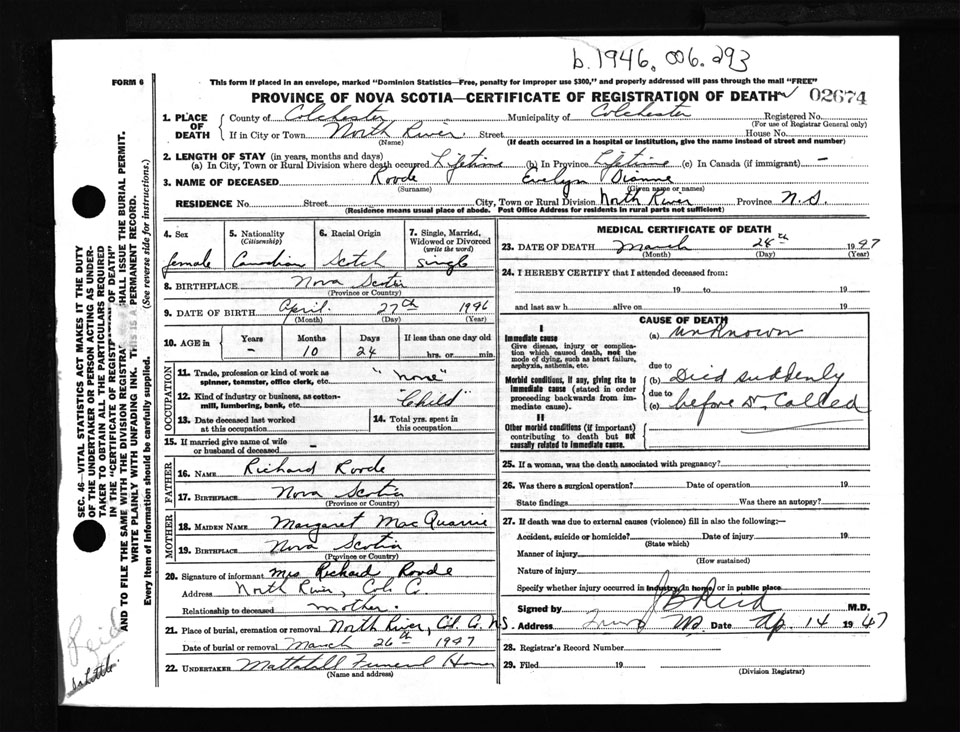 b. 1946. 006. 293
FORM 6
This form if placed in an envelope, marked "Dominion Statistics—Free, penalty for improper use $300," and properly addressed will pass through the mail "FREE"
PROVINCE OF NOVA SCOTIA—CERTIFICATE OF REGISTRATION OF DEATH 02674
1. PLACE OF DEATH County of Colchester Municipality of Colchester Registered No.
(For use of Registrar General only)
If in City or Town North River Street House No.
(Name) (If death occurred in a hospital or institution, give the name instead of street and number)
2. LENGTH OF STAY (in years, months and days)
(a) In City, Town or Rural Division where death occured Lifetime (b) In Province Lifetime (c) In Canada (if immigrant) —
3. NAME OF DECEASED Roode Evelyn Dianne
(Surname) (Given name or names)
RESIDENCE No. Street City, Town or Rural Division North River Province N.S.
(Residence means usual place of abode. Post Office Address for residents in rural parts not sufficient)
4. Sex female
5. Nationality (Citizenship) Canadian
6. Racial Origin Scotch
7. Single, Married, Widowed or Divorced (write the word) single
8. BIRTHPLACE Nova Scotia
(Province or Country)
9. DATE OF BIRTH April 27th 1946
(Month) (Day) (Year)
10. AGE in Years Months Days If less than one day old
- 10 24 hrs. or min.
OCCUPATION
11. Trade, profession or kind of work as spinner, teamster, office clerk, etc. "none"
12. Kind of industry or business, as cotton-mill, lumbering, bank, etc. "Child"
13. Date deceased last worked at this occupation
14. Total yrs. spent in this occupation
15. If married give name of wife or husband of deceased -
FATHER
16. NAME Richard Roode
17. BIRTHPLACE Nova Scotia
(Province or Country)
MOTHER
18. MAIDEN NAME Margaret MacQuarrie
19. BIRTHPLACE Nova Scotia
(Province or Country)
20. Signature of informant Mrs Richard Roode
Address North River, Col. Co.
Relationship to deceased mother.
21. Place of burial, cremation or removal North River, Col. Co. N.S.
Date of burial or removal March 26th 1947
22. UNDERTAKER Mattatall Funeral Home
(Name and address)
MEDICAL CERTIFICATE OF DEATH
23. DATE OF DEATH March 24th 1947
(Month) (Day) (Year)
24. I HEREBY CERTIFY that I attended deceased from:
19 to 19
and last saw h alive on 19
CAUSE OF DEATH
I
Immediate cause
Give disease, injury or complication which caused death, not the mode of dying, such as heart failure, asphyxia, asthenia, etc.
(a) unknown
due to
Morbid conditions, if any, giving rise to immediate cause (stated in order proceeding backwards from immediate cause).
(b) Died suddenly
due to
(c) before Dr. Called
II
Other morbid conditions (if important) contributing to death but not causally related to immediate cause.
25. If a woman, was the death associated with pregnancy?
26. Was there a surgical operation? Date of operation 19
State findings Was there an autopsy?
27. If death was due to external causes (violence) fill in also the following:—
Accident, suicide or homicide? Date of injury 19
(State which)
Manner of injury
(How sustained)
Nature of injury
Specify whether injury occurred in industry, in home, or in public place
Signed by J B Reid M.D.
Address Truro NS Date Ap. 14 1947
28. Registrar's Record Number
29. Filed 19
(Division Registrar)
SEC. 46— VITAL STATISTICS ACT MAKES IT THE DUTY
OF THE UNDERTAKER OR PERSON ACTING AS UNDER-
TAKER TO OBTAIN ALL THE PARTICULARS REQUIRED
IN THE "CERTIFICATE OF REGISTRATION OF DEATH"
AND TO FILE THE SAME WITH THE DIVISION REGISTRAR SHALL ISSUE THE BURIAL PERMIT.
WRITE PLAINLY WITH UNFADING INK. THIS IS A PERMANENT RECORD.
Every Item of Information should be carefully supplied. (See reverse side for instructions.)
Reid